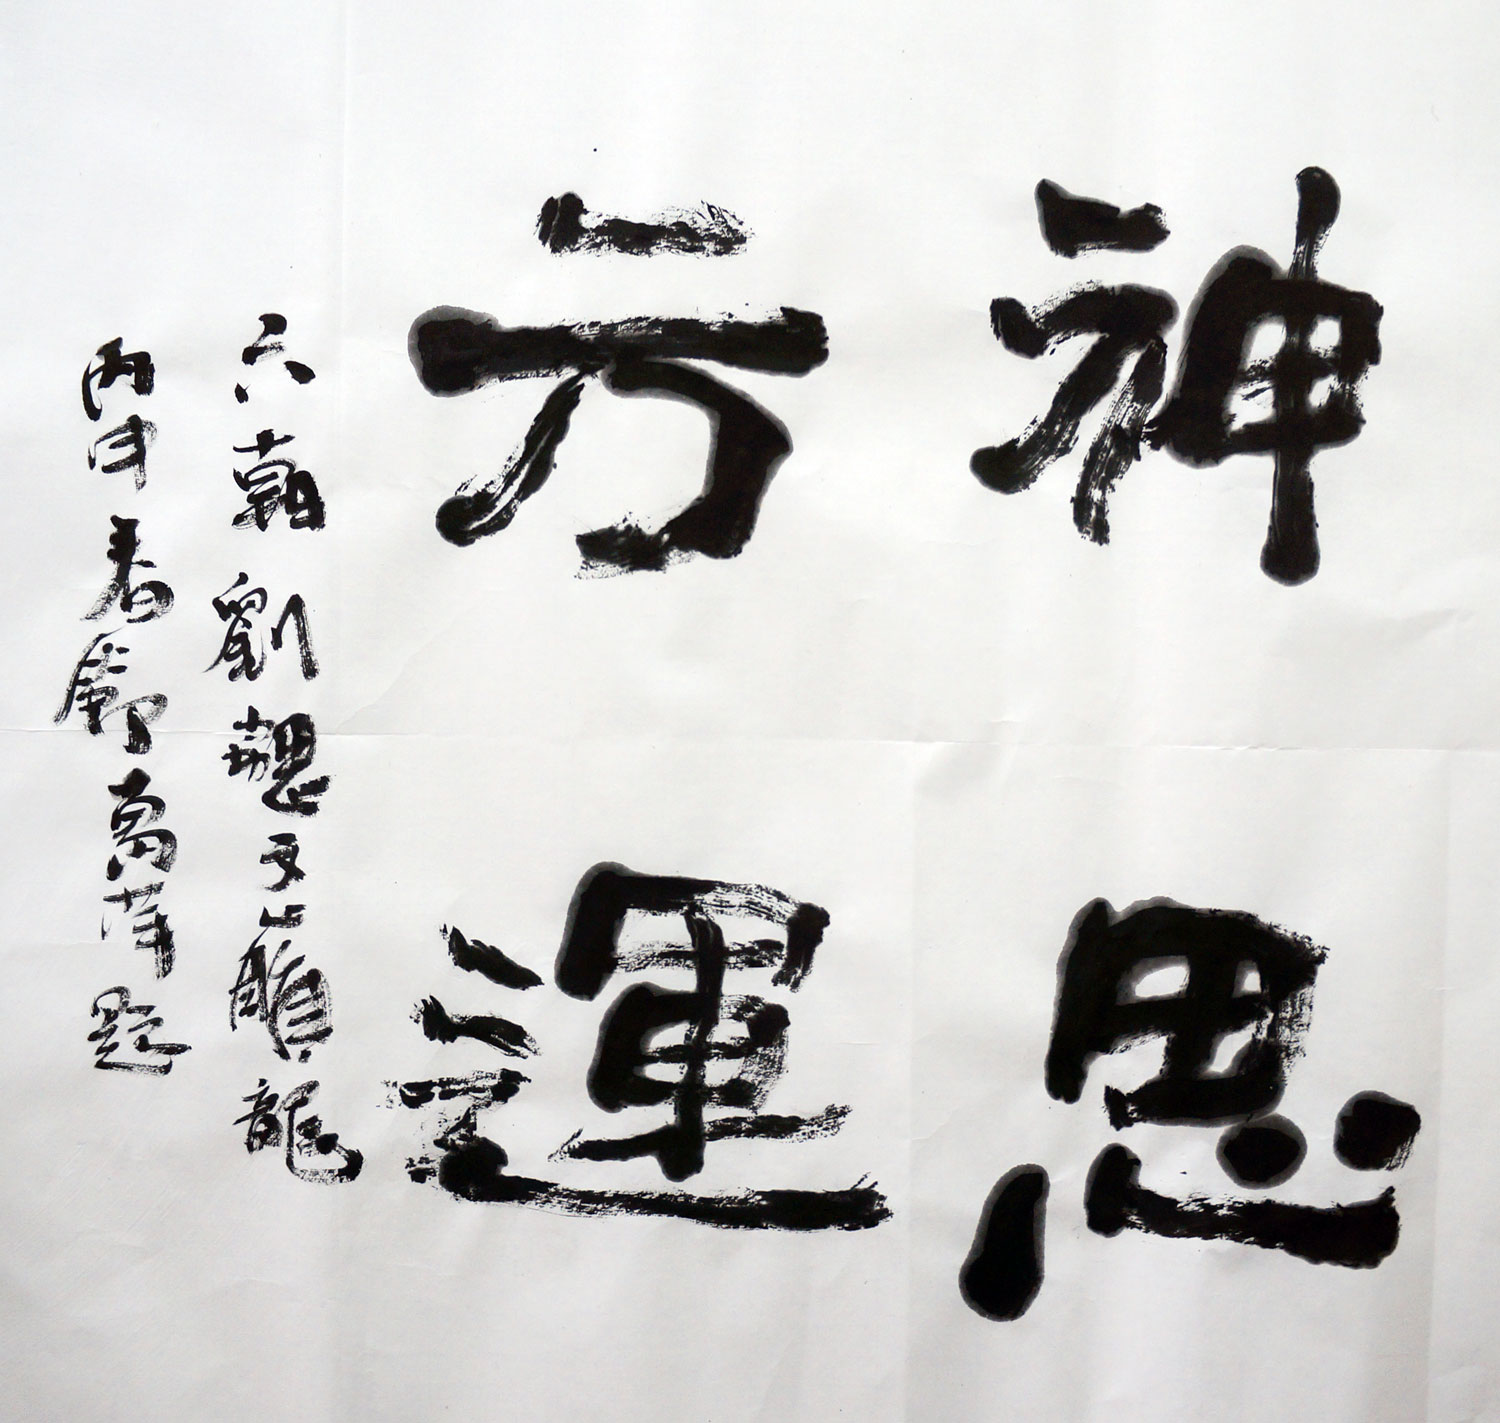 神思
方運
六朝劉勰文心雕龍
丙申春題